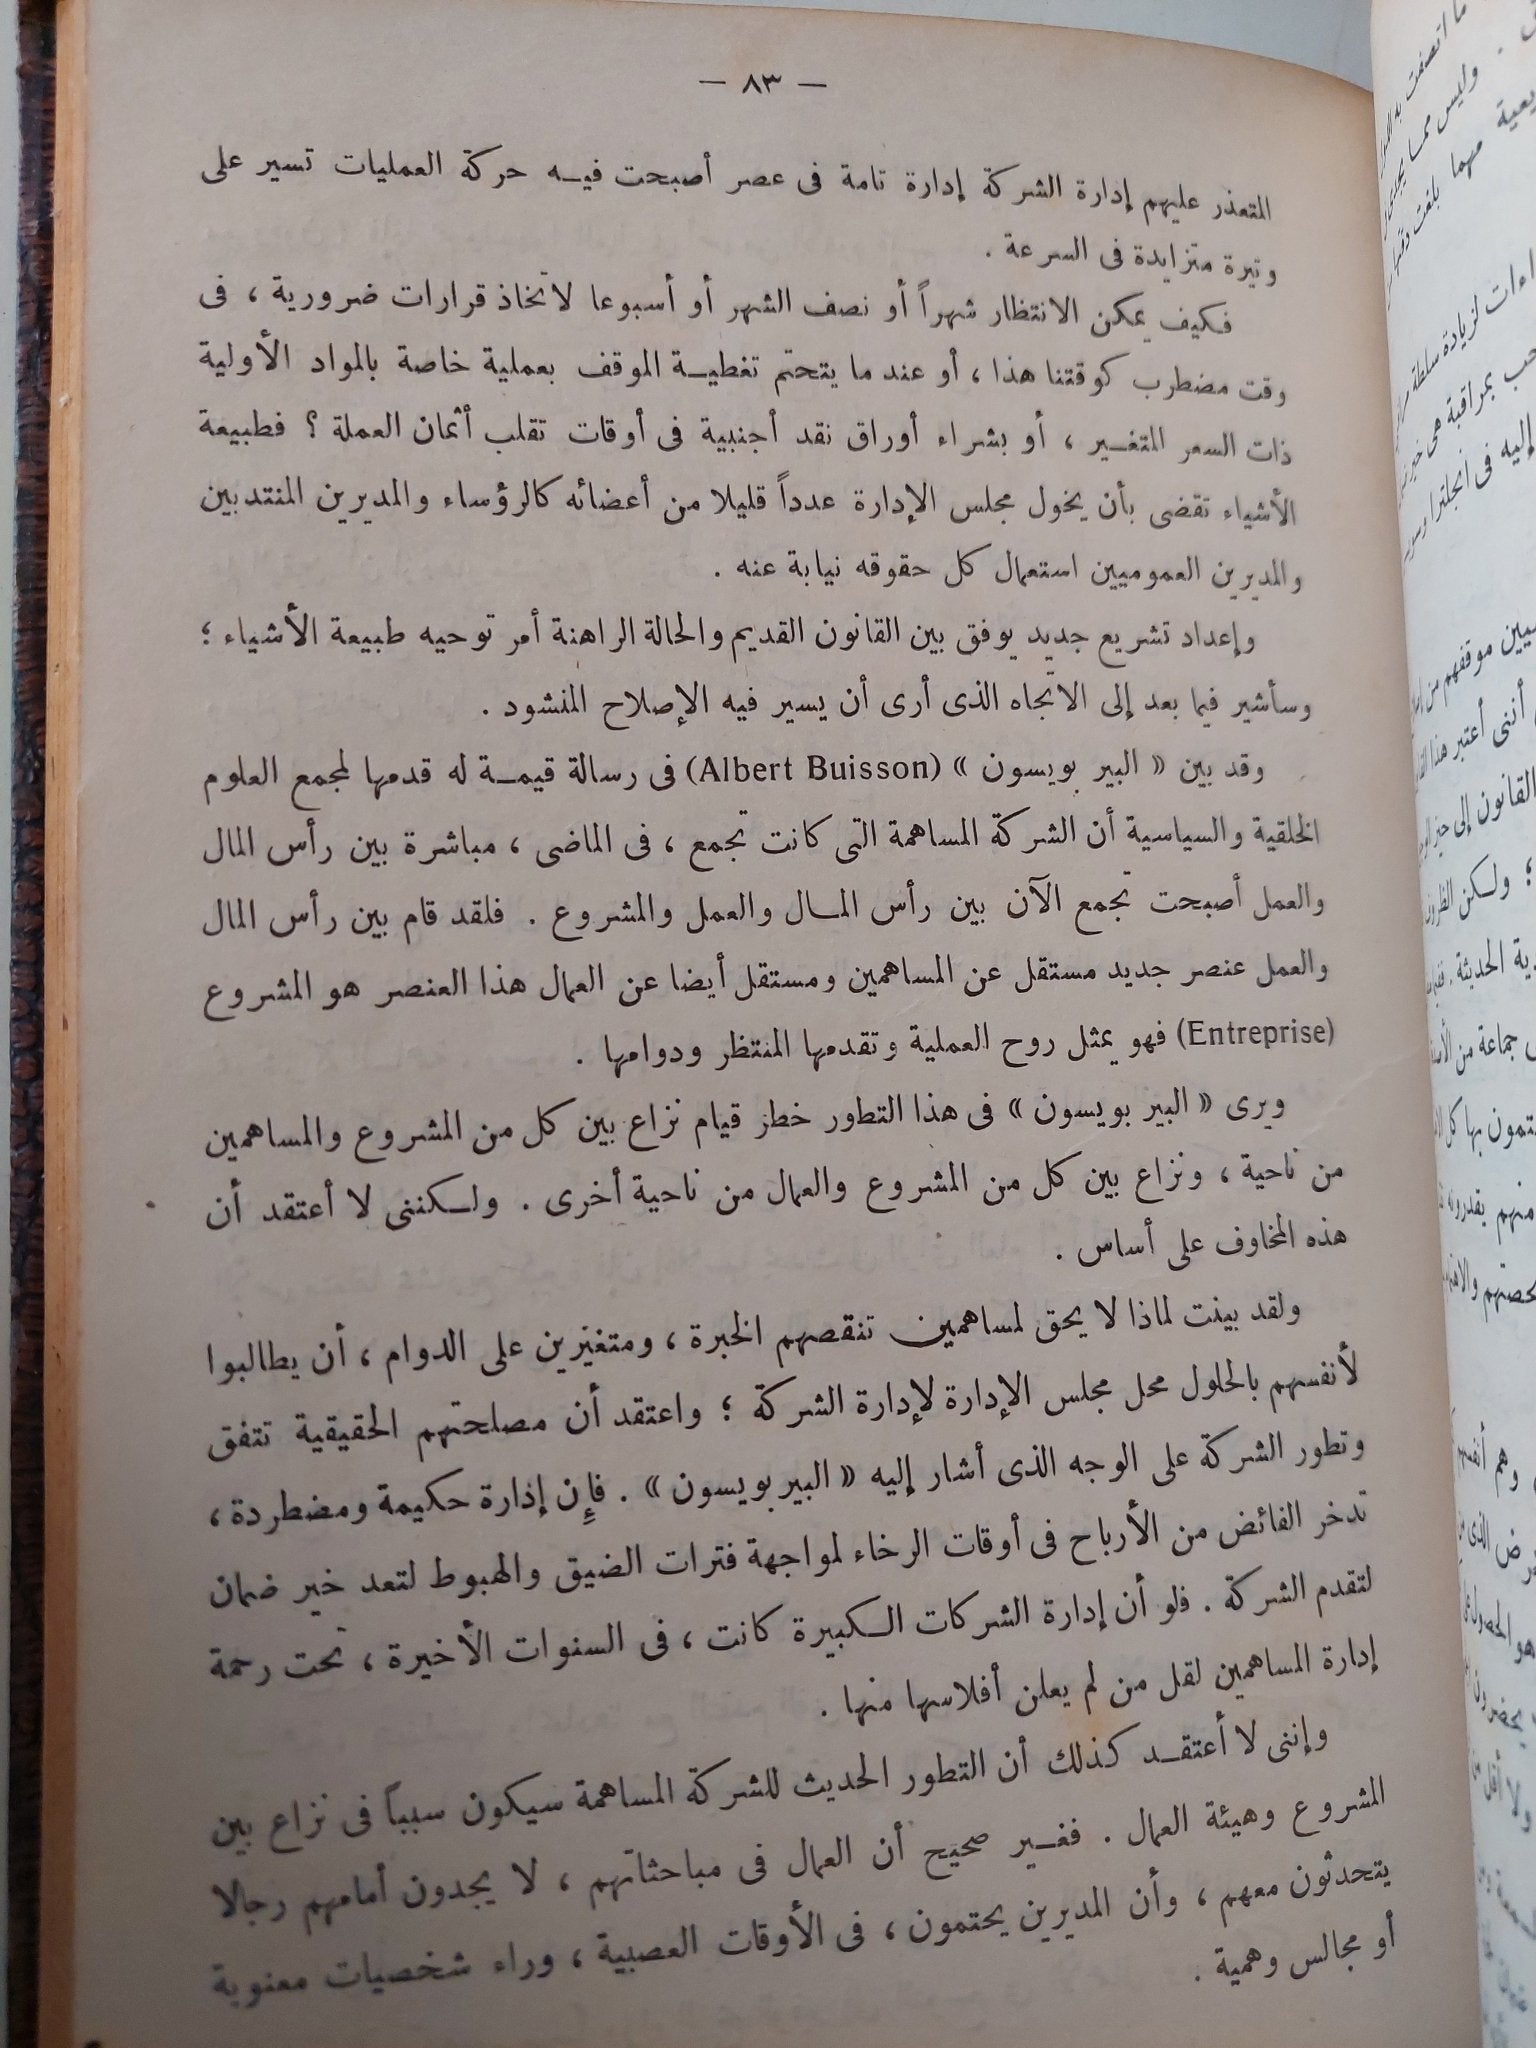 — ٨٣ —
المتعذر عليهم إدارة الشركة إدارة تامة فى عصر أصبحت فيه حركة العمليات تسير على
وتيرة متزايدة فى السرعة .
فكيف يمكن الانتظار شهراً أو نصف الشهر أو أسبوعا لاتخاذ قرارات ضرورية ، فى
وقت مضطرب كوقتنا هذا ، أو عند ما يتحتم تغطية الموقف بعملية خاصة بالمواد الأولية
ذات السعر المتغير ، أو بشراء أوراق نقد أجنبية فى أوقات تقلب أثمان العملة ؟ فطبيعة
الأشياء تقضى بأن يخول مجلس الإدارة عدداً قليلا من أعضائه كالرؤساء والمديرين المنتدبين
والمديرين العموميين استعمال كل حقوقه نيابة عنه .
وإعداد تشريع جديد يوفق بين القانون القديم والحالة الراهنة أمر توحيه طبيعة الأشياء ؛
وسأشير فيما بعد إلى الاتجاه الذى أرى أن يسير فيه الإصلاح المنشود .
وقد بين « البير بويسون » (Albert Buisson) فى رسالة قيمة له قدمها لمجمع العلوم
الخلقية والسياسية أن الشركة المساهمة التى كانت تجمع ، فى الماضى ، مباشرة بين رأس المال
والعمل أصبحت تجمع الآن بين رأس المال والعمل والمشروع . فلقد قام بين رأس المال
والعمل عنصر جديد مستقل عن المساهمين ومستقل أيضا عن العمال هذا العنصر هو المشروع
(Entreprise) فهو يمثل روح العملية وتقدمها المنتظر ودوامها .
ويرى « البير بويسون » فى هذا التطور خطر قيام نزاع بين كل من المشروع والمساهمين
من ناحية ، ونزاع بين كل من المشروع والعمال من ناحية أخرى . ولكننى لا أعتقد أن
هذه المخاوف على أساس .
ولقد بينت لماذا لا يحق لمساهمين تنقصهم الخبرة ، ومتغيرين على الدوام ، أن يطالبوا
لأنفسهم بالحلول محل مجلس الإدارة لإدارة الشركة ؛ واعتقد أن مصلحتهم الحقيقية تتفق
وتطور الشركة على الوجه الذى أشار إليه « البير بويسون » . فإن إدارة حكيمة ومضطردة ،
تدخر الفائض من الأرباح فى أوقات الرخاء لمواجهة فترات الضيق والهبوط لتعد خير ضمان
لتقدم الشركة . فلو أن إدارة الشركات الكبيرة كانت ، فى السنوات الأخيرة ، تحت رحمة
إدارة المساهمين لقل من لم يعلن أفلاسها منها .
وإننى لا أعتقد كذلك أن التطور الحديث للشركة المساهمة سيكون سبباً فى نزاع بين
المشروع وهيئة العمال . فغير صحيح أن العمال فى مباحثاتهم ، لا يجدون أمامهم رجالا
يتحدثون معهم ، وأن المديرين يحتمون ، فى الأوقات العصبية ، وراء شخصيات معنوية
أو مجالس وهمية .